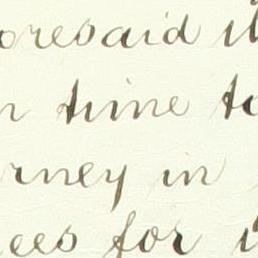 oresaid
time to
rney in
ees for